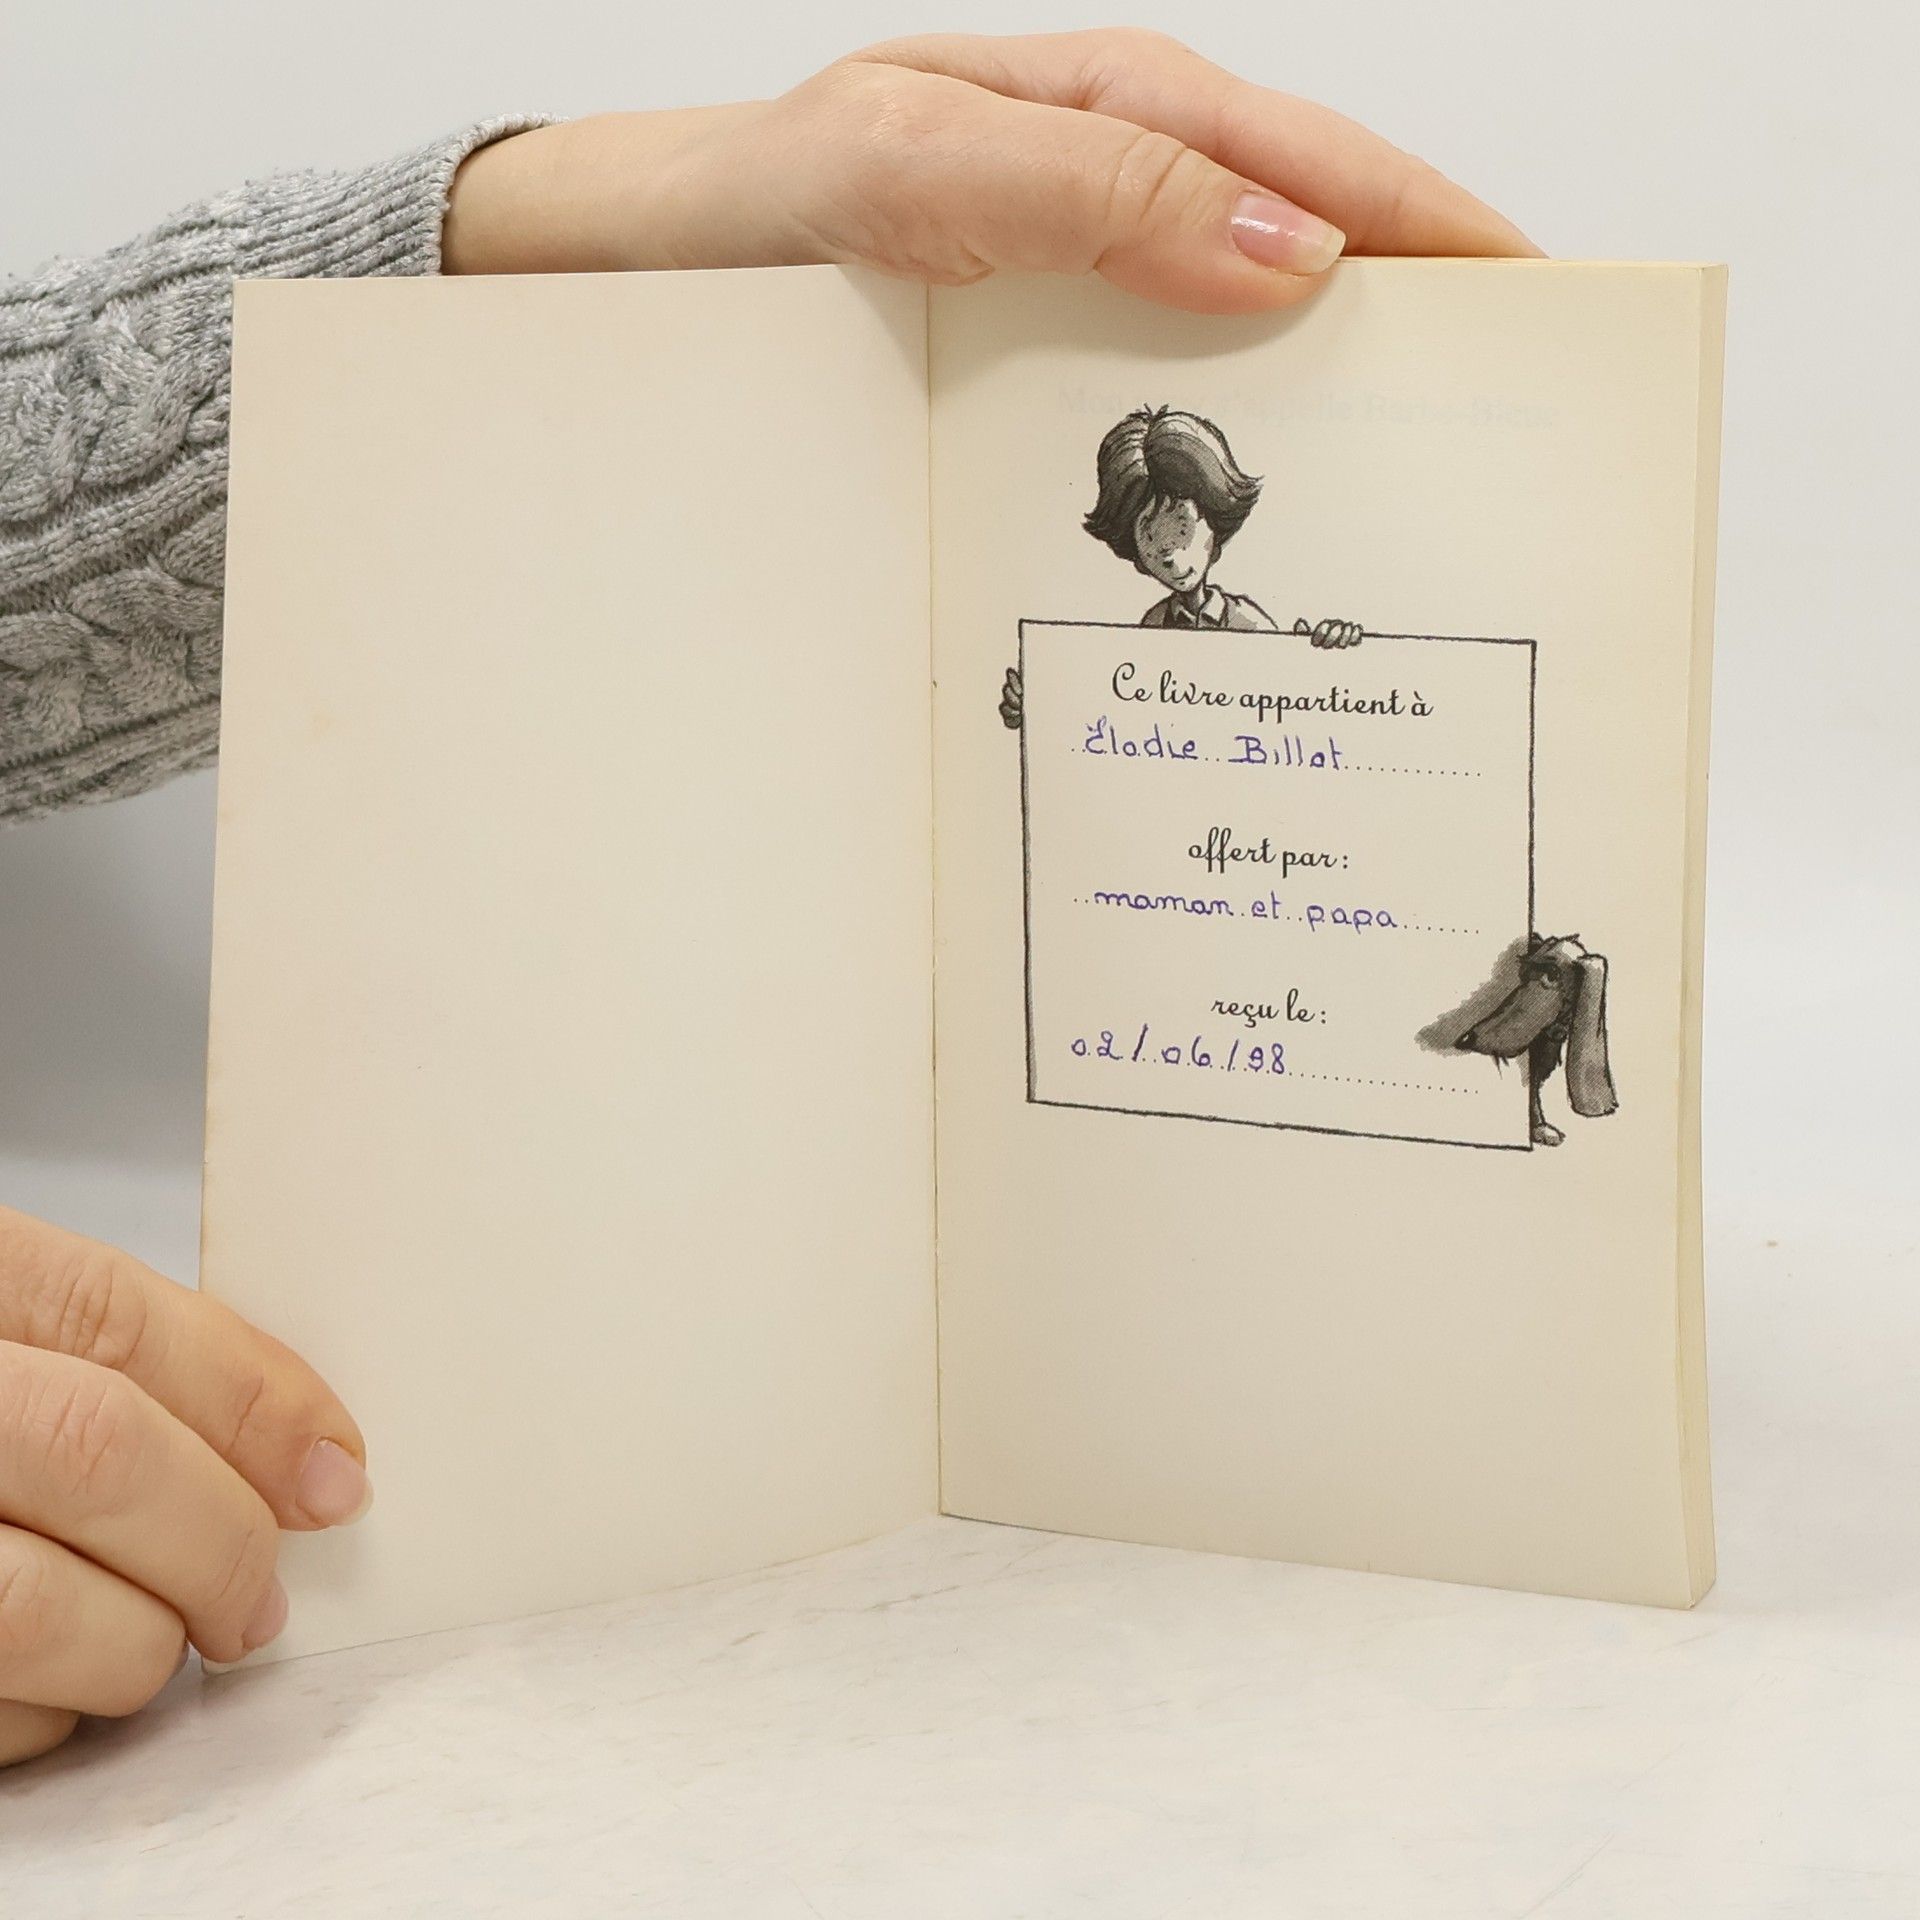 Ce livre appartient à
Élodie Billot
offert par :
maman et papa
reçu le :
02/06/98